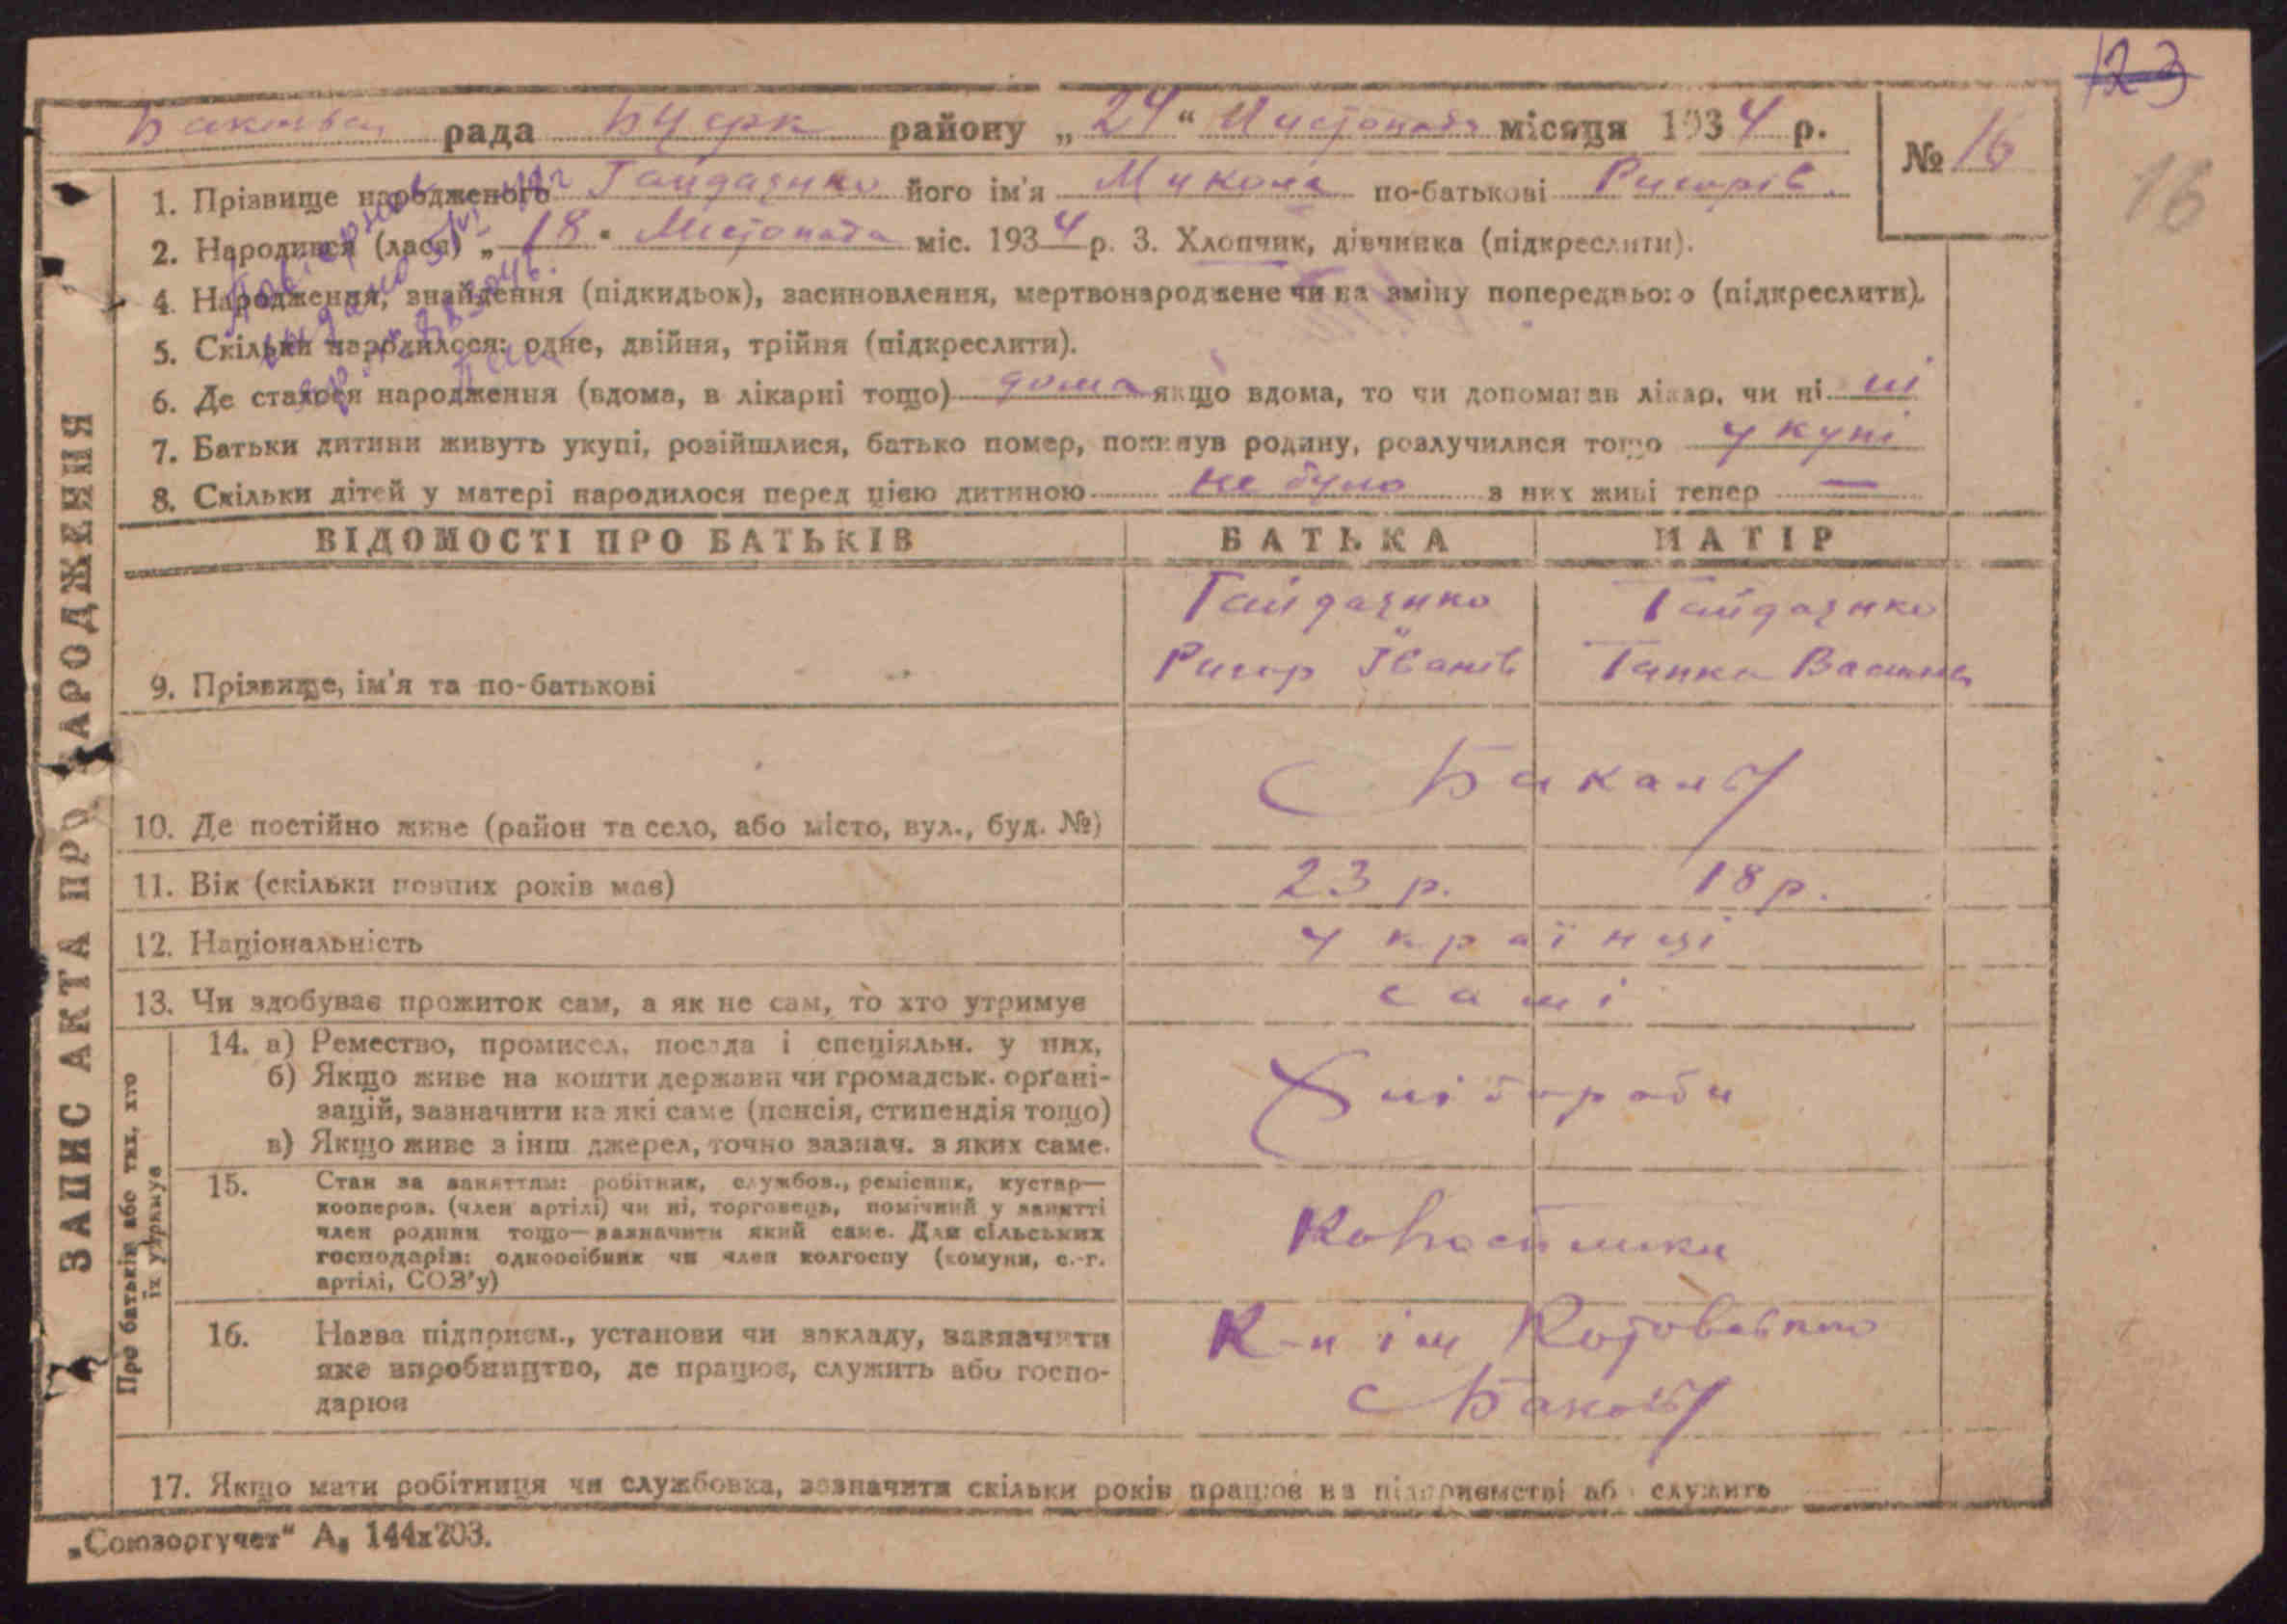 123
рада Бчерк району „24“ Листопада місяця 1934 р.
№ 16
16
1. Прізвище народженого його ім'я Микола по-батькові Ригорів.
2. Народився (лася) „18“ Листопада міс. 1934 р. 3. Хлопчик, дівчинка (підкреслити).
4. Народження, знайдення (підкидьок), засиновлення, мертвонароджене чи на зміну попереднього (підкреслити).
5. Скільки народилося: одне, двійня, трійня (підкреслити).
6. Де сталося народження (вдома, в лікарні тощо) дома якщо вдома, то чи допомагав лікар, чи ні ні
7. Батьки дитини живуть укупі, розійшлися, батько помер, покинув родину, розлучилися тощо укупі
8. Скільки дітей у матері народилося перед цією дитиною не було з них живі тепер —
ВІДОМОСТІ ПРО БАТЬКІВ БАТЬКА МАТІР
9. Прізвище, ім'я та по-батькові
Ригор Іванів
10. Де постійно живе (район та село, або місто, вул., буд. №)
11. Вік (скільки повних років має) 23 р. 18 р.
12. Національність українці
13. Чи здобуває прожиток сам, а як не сам, то хто утримує самі
14. а) Ремество, промисел, посада і спеціяльн. у них,
б) Якщо живе на кошти держави чи громадськ. органі-
зацій, зазначити на які саме (пенсія, стипендія тощо)
в) Якщо живе з інш джерел, точно зазнач. з яких саме.
Хлібороби
15. Стан за заняттям: робітник, службов., ремісник, кустар—
кооперов. (член артілі) чи ні, торговець, помічний у занятті
член родини тощо—зазначити який саме. Для сільських
господарів: одноосібник чи член колгоспу (комуни, с.-г.
артілі, СОЗ'у)
Колгоспники
16. Назва підприєм., установи чи закладу, зазначити
яке виробництво, де працює, служить або госпо-
дарює
К-п ім Котовського
17. Якщо мати робітниця чи службовка, зазначити скільки років працює на підприємстві або служить
ЗАПИС АКТА ПРО НАРОДЖЕННЯ
Про батьків або тих, хто
їх утримує
„Союзоргучет“ А₅ 144х203.